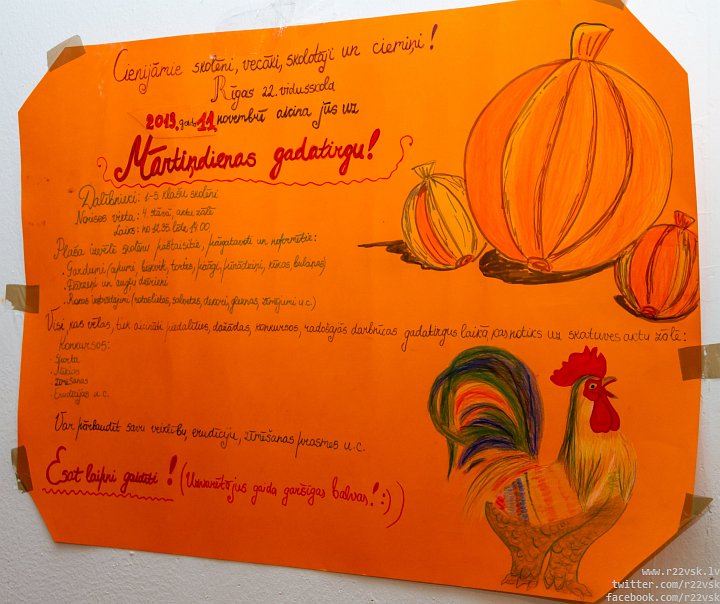 Cienījāmie skolēni, vecāki, skolotāji un ciemiņi!
Rīgas 22. vidusskola
2013. gada 12. novembrī aicina jūs uz
Mārtiņdienas gadatirgu!
Dalībnieki: 1-5 klašu skolēni
Norises vieta: 4. stāvā, aktu zālē
Laiks: no 12.55 līdz 14.00
Plaša izvēlē skolēnu paštaisītie, pagatavoti un noformētie:
Gardumi (cepumi, biskvīti, tortes, pīrāgi, pīrādziņi, kūkas, bulciņas)
Dārzeņi un augļu
Visi, kas vēlas, tiek aicināti piedalīties dažādos konkursos, radošajās darbnīcās gadatirgus laikā, kas notiks uz skatuves aktu zālē:
Konkursos:
Sporta
Mūzikas
Zīmēšanas
Erudīcijas u.c.
Var pārbaudīt savu veiklību, erudīciju, zīmēšanas prasmes u.c.
Esat laipni gaidīti! (Uzvarētājus gaida garšīgas balvas! :))
www.r22vsk.lv
twitter.com/r22vsk
facebook.com/r22vsk